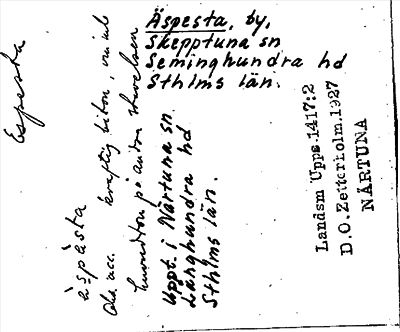 Äspesta, by,
Skepptuna sn
Seminghundra hd
Sthlms län.
Espesta
äspästa
Ord acc. kraftig biton, minst
huvudton på andra stavelsen
Uppt. i Närtuna sn.
Långhundra hd
Sthlms län.
Landsm Upps.1417:2
D.O.Zetterholm.1927
NÄRTUNA